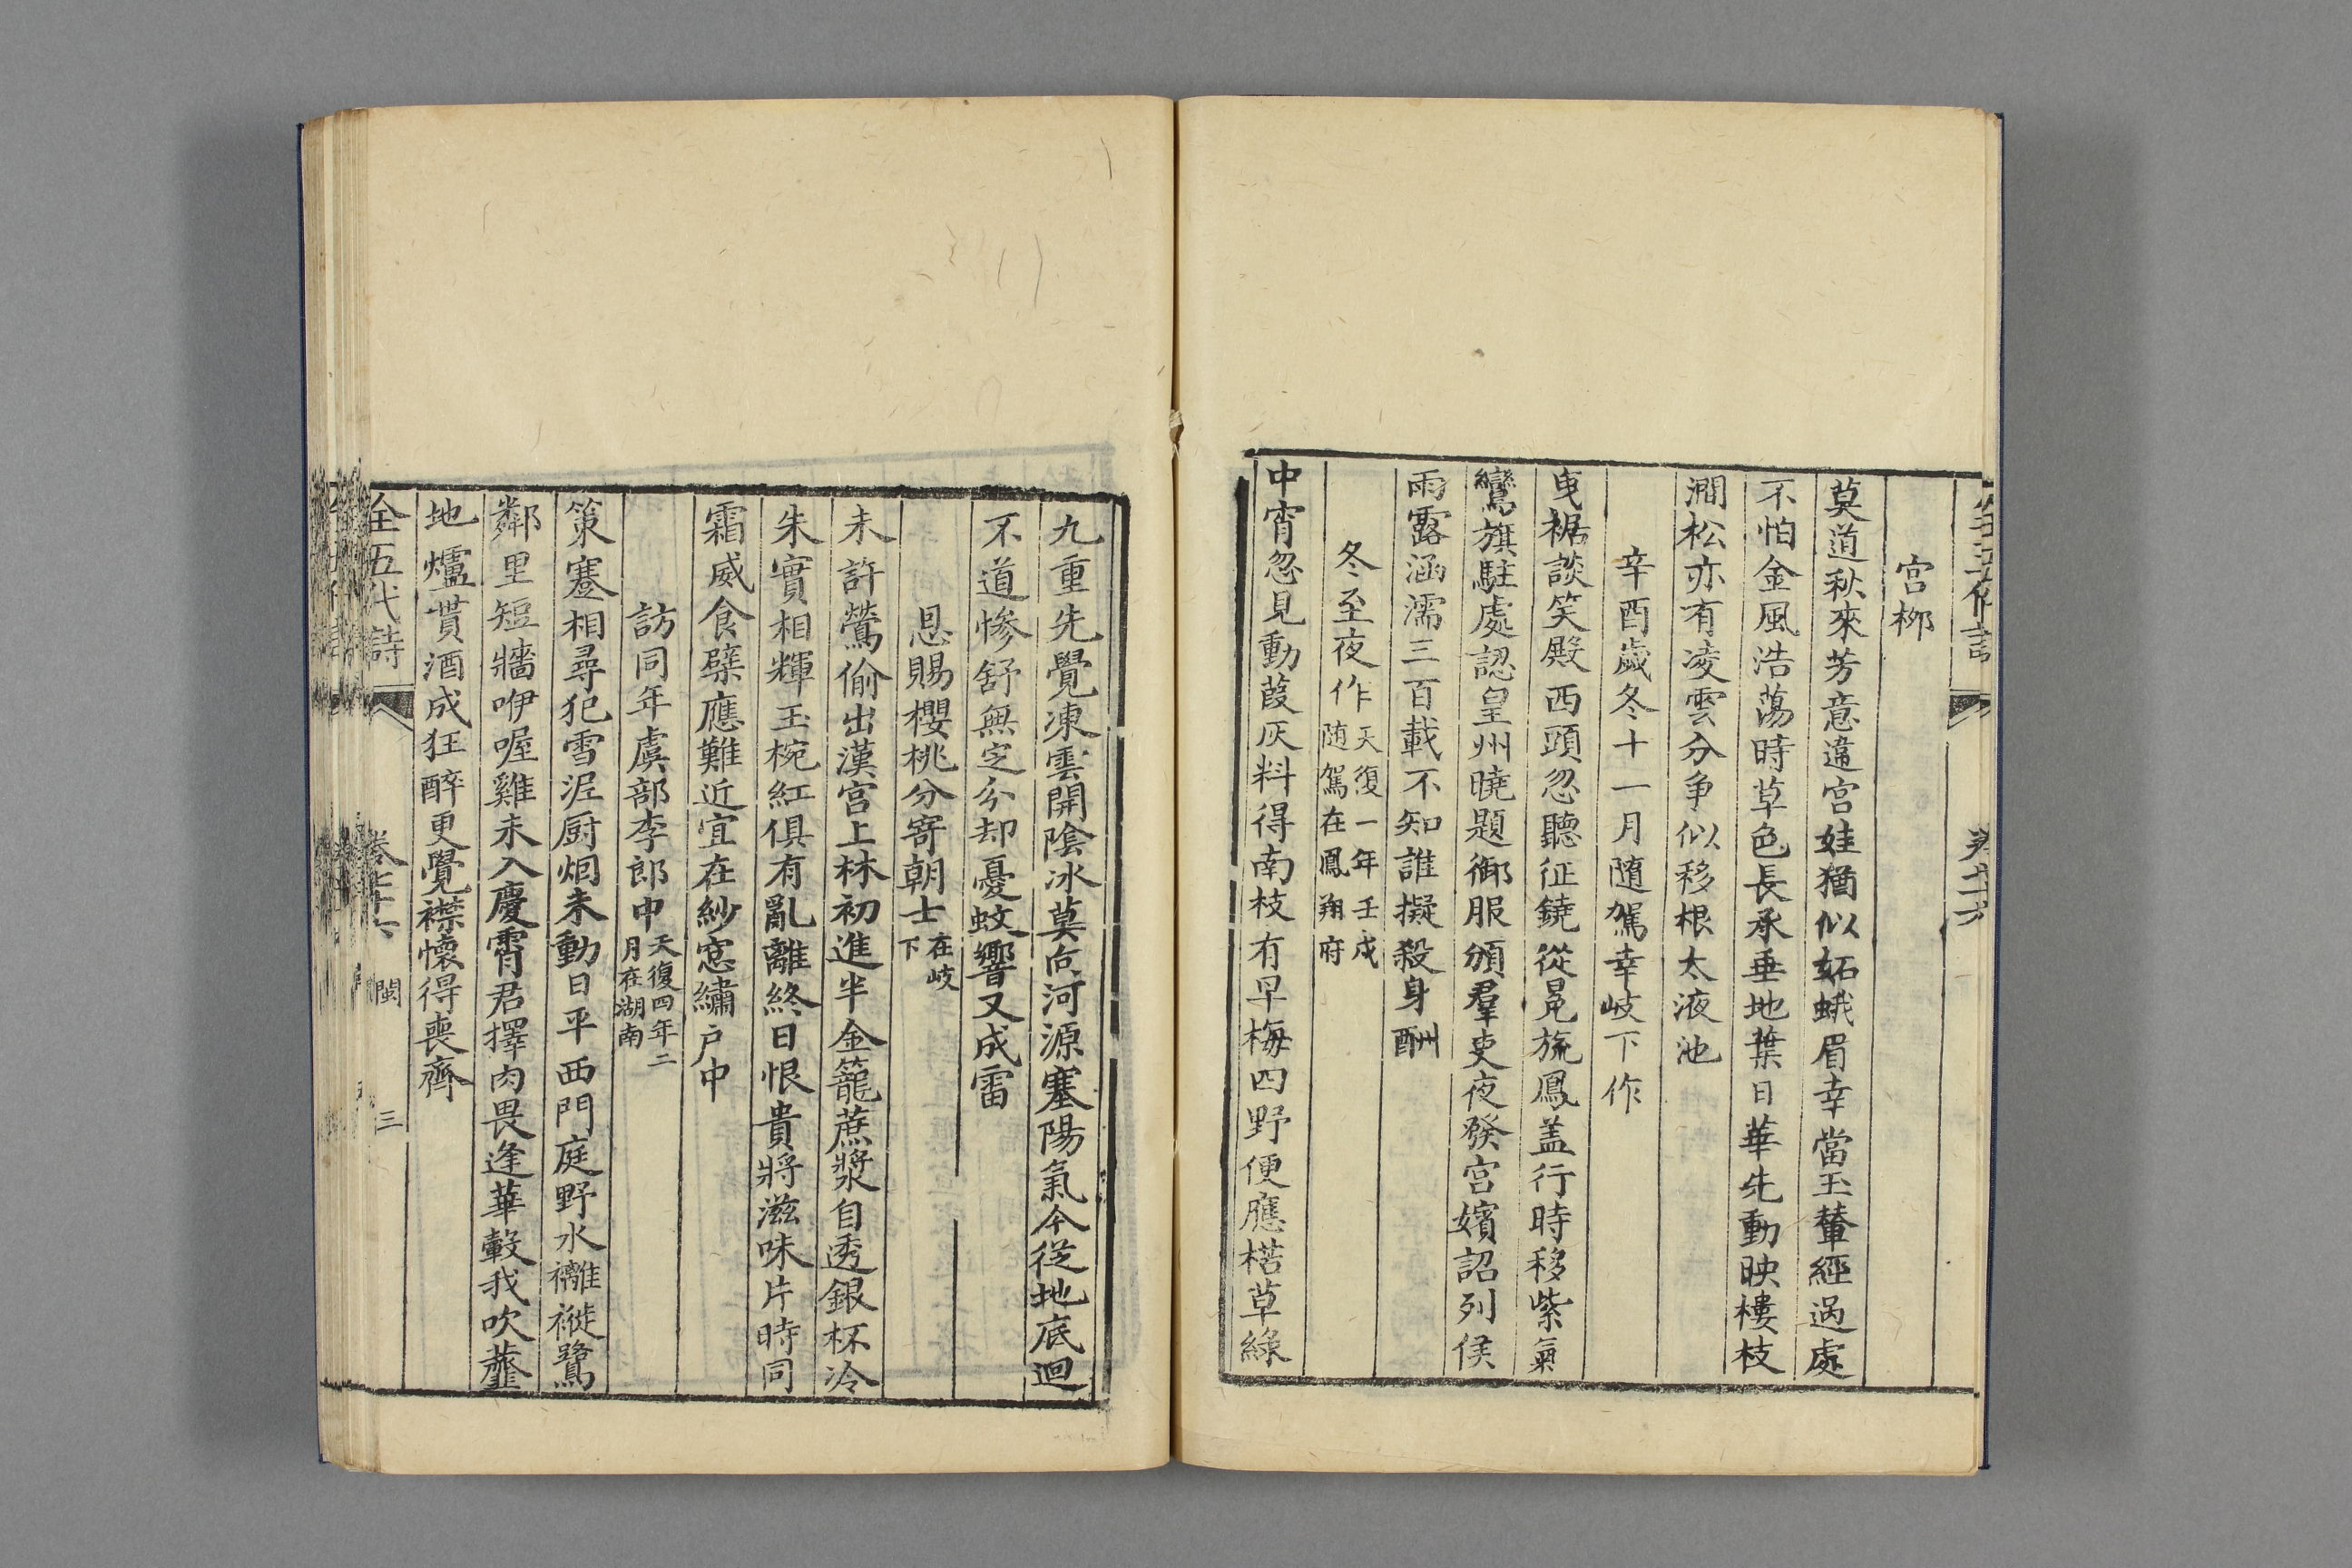 全五代詩
宫柳
莫道秋來芳意違宫娃猶似妬蛾眉幸當玉輦經過處
不怕金風浩蕩時草色長承垂地葉日華先動映樓枝
澗松亦有凌雲分争似移根太液池
辛酉歲冬十一月隨駕幸岐下作
曳裾談笑殿西頭忽聽征鐃從冕旒鳳盖行時移紫氣
鸞旗駐處認皇州曉題御服頒羣吏夜發宫嬪詔列侯
雨露涵濡三百載不知誰擬殺身酬
冬至夜作天復一年壬戌
随駕在鳳翔府
中宵忽見動葭灰料得南枝有早梅四野便應枯草綠
九重先覺凍雲開陰冰莫向河源塞陽氣今從地底迴
不道慘舒無定分却憂蚊響又成雷
恩賜櫻桃分寄朝士在岐
下
未許鶯偷出漢宫上林初進半金籠蔗漿自透銀杯冷
朱實相輝玉椀紅俱有亂離終日恨貴將滋味片時同
霜威食檗應難近宜在紗窓繡户中
訪同年虞部李郎中天復四年二
月在湖南
策蹇相尋犯雪泥厨烟未動日平西門庭野水褵褷鷺
鄰里短牆咿喔雞未入慶霄君擇肉畏逢華轂我吹虀
地爐貰酒成狂醉更覺襟懷得喪齊
全五代詩
卷七十六 閩 三